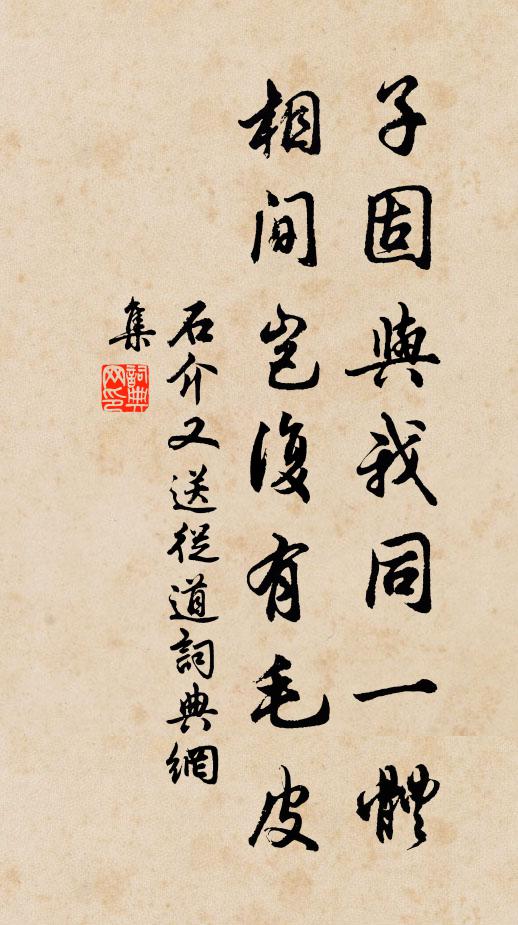 子固與我同一體
相間豈復有毛皮
石介又送從道詞典網
集
詞典網印